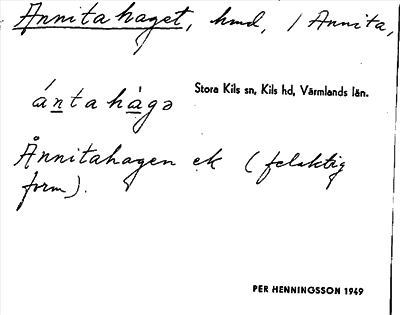 Annitahaget, hmd, / Annita,
Stora Kils sn, Kils hd, Värmlands län.
ántahàgə
Ånnitahagen ek (felaktig
form).
PER HENNINGSSON 1949